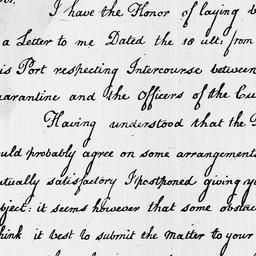 I have the Honor of laying b
a Letter to me Dated the 18 ult: from
is Port respecting Intercourse between
uarantine and the Officers of the Cu
Having understood that the
uld probably agree on some arrangements
utually satisfactory I postponed giving yo
bject: it seems however that some obstac
hink it best to submit the matter to your